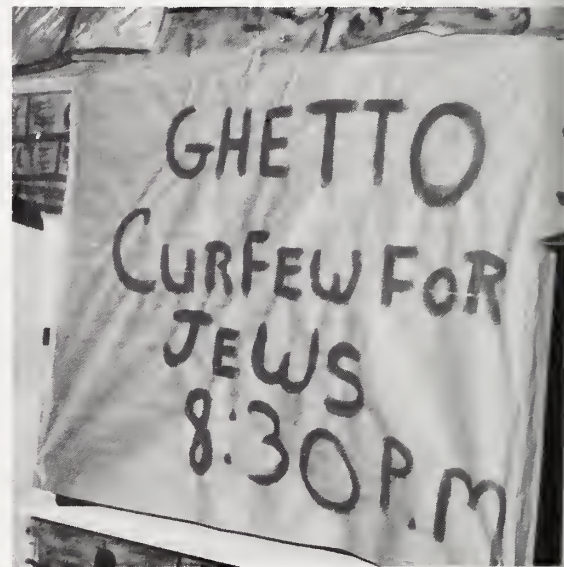 GHETTO
CURFEW FOR
JEWS
8:30 P.M